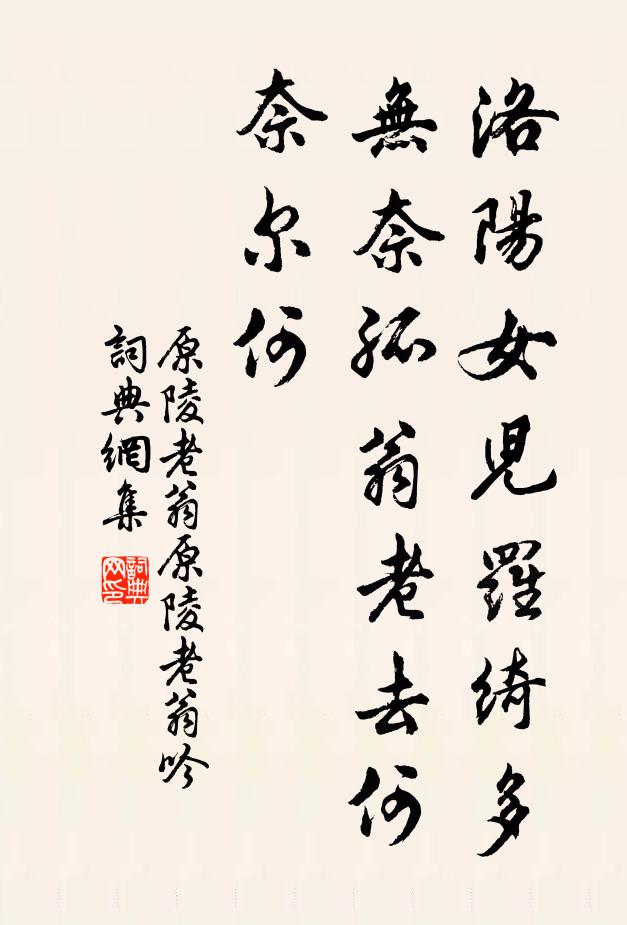 洛陽女児羅綺多
無奈孤翁老去何
奈尔何
原陵老翁原陵老翁吟
詞典網集
詞典网印